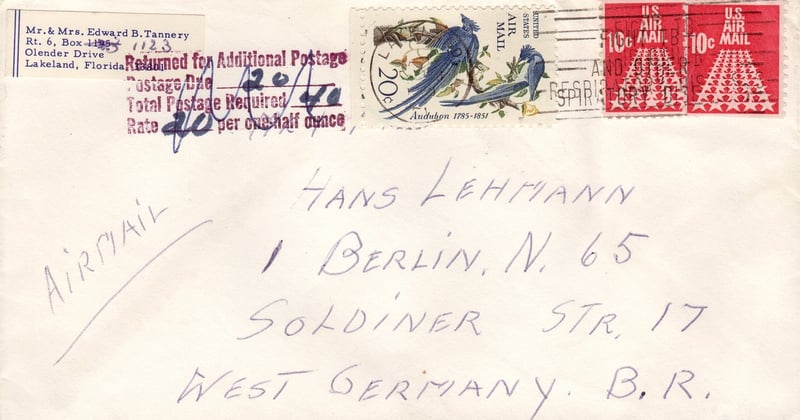 Mr. & Mrs. Edward B. Tannery
Rt. 6, Box 1123
Olender Drive
Lakeland, Florida
Returned for Additional Postage
Postage Due 20
Total Postage Required 40
Rate 20 per one-half ounce
UNITED STATES
AIR MAIL
20c
Audubon 1785-1851
U.S. AIR MAIL
10c
U.S. AIR MAIL
10c
AND OTHER
AIRMAIL
HANS LEHMANN
1 BERLIN, N. 65
SOLDINER STR. 17
WEST GERMANY. B.R.